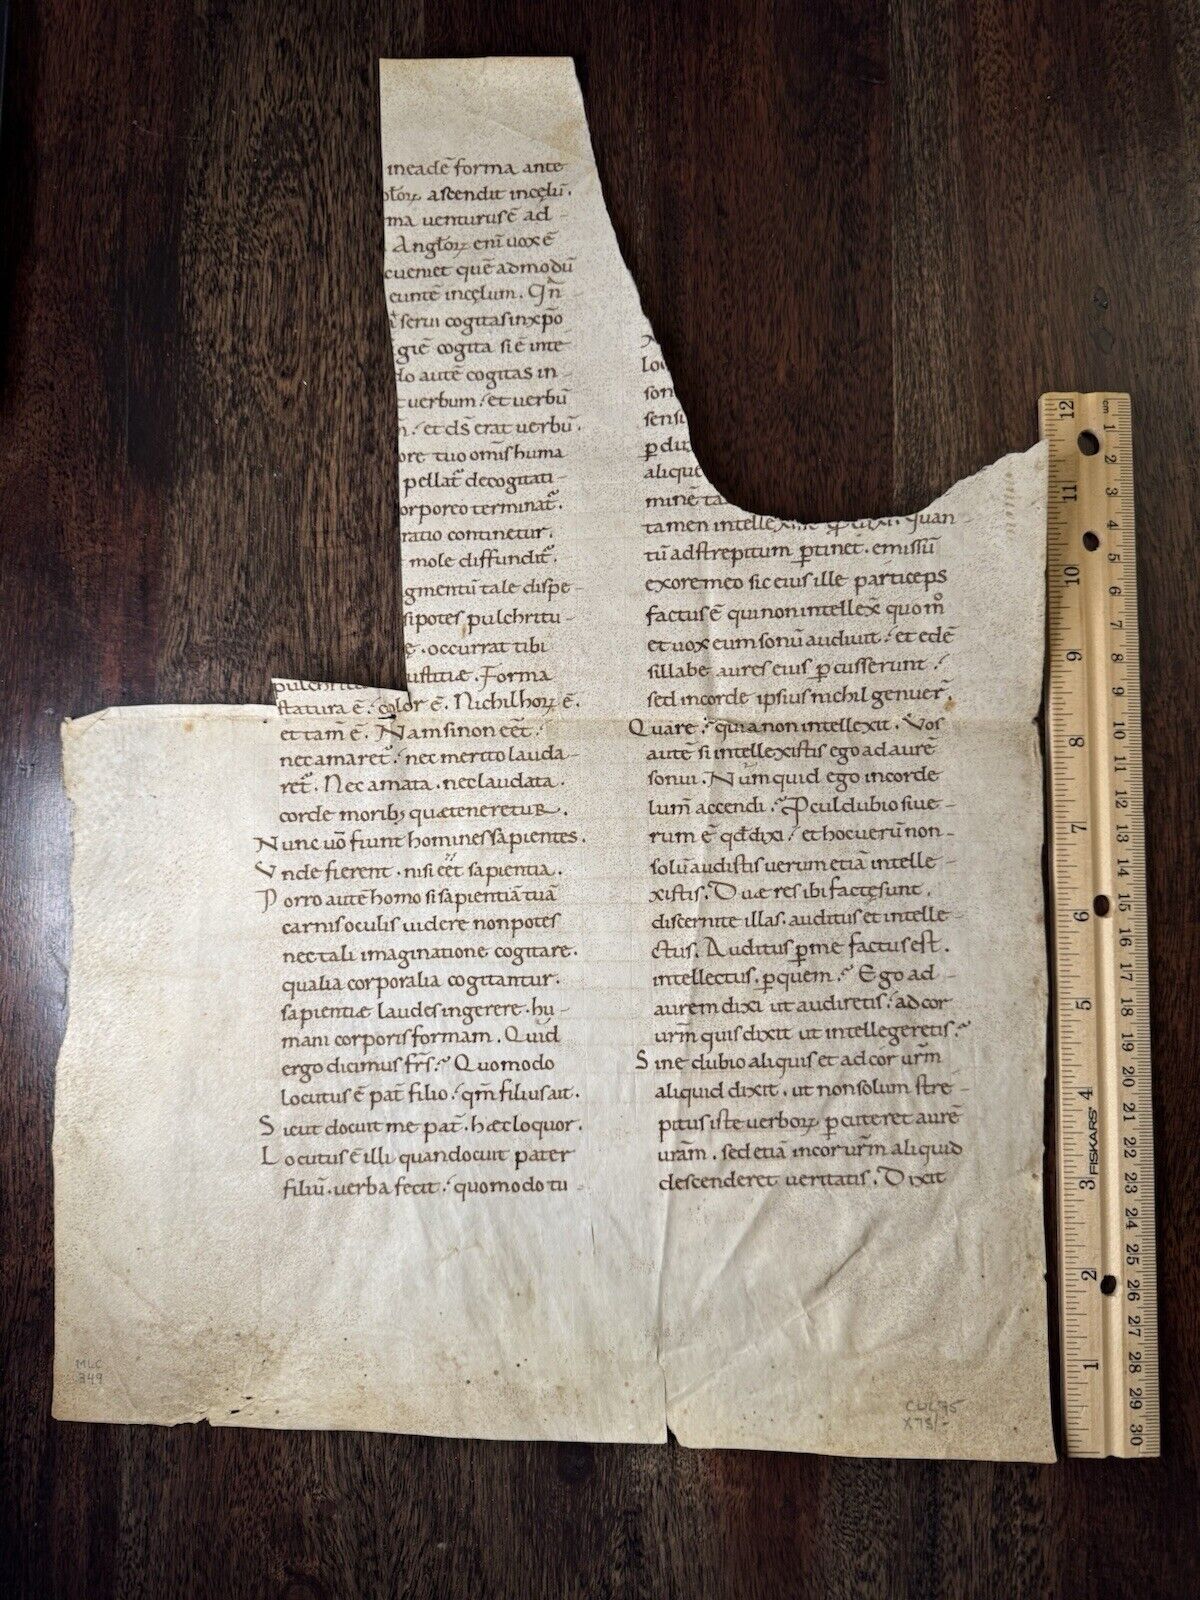 ineadē forma ante
ascendit incęlū.
ma venturus ē ad -
Anglōꝝ enī uox ē
cueniet quē admodū
euntē incęlum. Qn̄
serui cogitas inxp̄o
giē cogita si ē inte -
do autē cogitas in -
verbum : et uerbū
et dš erat uerbū.
ore tuo omīs huma
pellat᷑ decogitati -
orporeo terminat᷑.
ratio continetur.
mole diffundit᷑.
gmentū tale dispe -
sipotes pulchritu -
ę. occurrat tibi
ustitiæ. Forma
statura ē : color ē. Nichil hoꝝ ē.
et tam ē. Nam si non eēt :
nec amaret᷑ : nec merito lauda -
ret᷑. Nec amata. nec laudata.
corde morib; quæ teneretur.
Nunc uō fiunt homines sapientes.
Vnde fierent. nisi eēt sapientia.
Porro autē homo si sapientiā tuā
carnis oculis uidere non potes
nec tali imaginatione cogitare.
qualia corporalia cogitantur.
sapientiæ laudes ingerere. hu -
mani corporis formam. Quid
ergo dicimus fr̄s : Quomodo
locutus ē pat᷑ filio : qm̄ filius ait.
Sicut docuit me pat᷑. hæc loquor.
Locutus ē illi quando cuit pater
filiū. uerba fecit : quomodo tu -
lo
son
sensi
ꝑdu
aliquē
minē ta
tamen intelle quan
tū ad strepitum ꝑtinet. emissū
ex ore meo sic eius ille particeps
factus ē qui non intellex̄ quom̊
et uox eum sonū audiuit : et edē
sillabe aures eius ꝑcusserunt :
sed in corde ipsius nichil genuer̄.
Quare : quia non intellexit. Vos
autē si intellexistis ego ad aurē
sonui. Numquid ego in corde
lum̄ accendi : Procul dubio si ue -
rum ē qđ dixi : et hoc uerū non -
solū audistis uerum etiā intelle -
xistis. Duæ res ibi factę sunt.
discernite illas. auditus et intelle -
ctus. Auditus ꝑ me factus est.
intellectus. ꝑ quem : Ego ad -
aurem dixi ut audiretis : ad cor
ur̄m quis dixit ut intellegeretis :
Sine dubio aliquis et ad cor ur̄m
aliquid dixit. ut non solum stre -
pitus iste uerboꝝ ꝑcuteret aurē
ur̄am. sed etiā in cor ur̄m aliquid
descenderet ueritatis. Dixit
MLC
349
X75/-
FISKARS
12
11
10
9
8
7
6
5
4
3
2
1
1
2
3
4
5
6
7
8
9
10
11
12
13
14
15
16
17
18
19
20
21
22
23
24
25
26
27
28
29
30